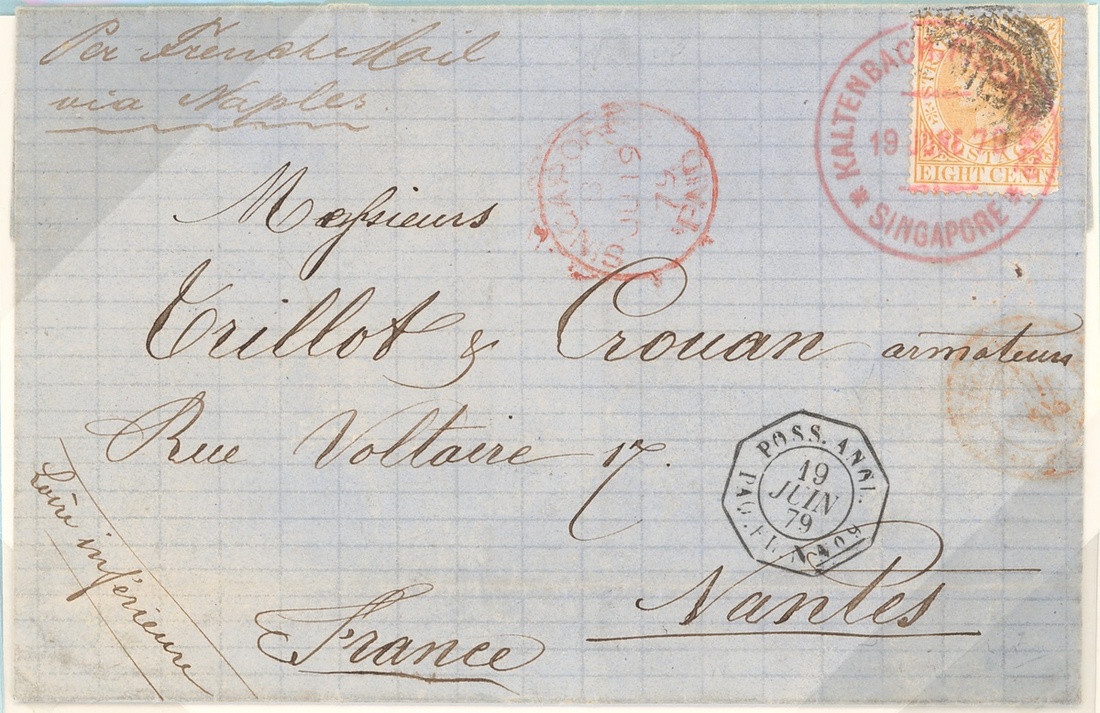 Per French Mail
via Naples.
Messieurs
Trillot & Crouan armateurs
Rue Voltaire 17.
Nantes
France
Loire inférieure
SINGAPORE
PAID
19 JU 79
KALTENBAC
19 JUNE 79
SINGAPORE
STR
POSTAGE
EIGHT CENTS
POSS. ANGL.
19
JUIN
79
PAQ. FR. N